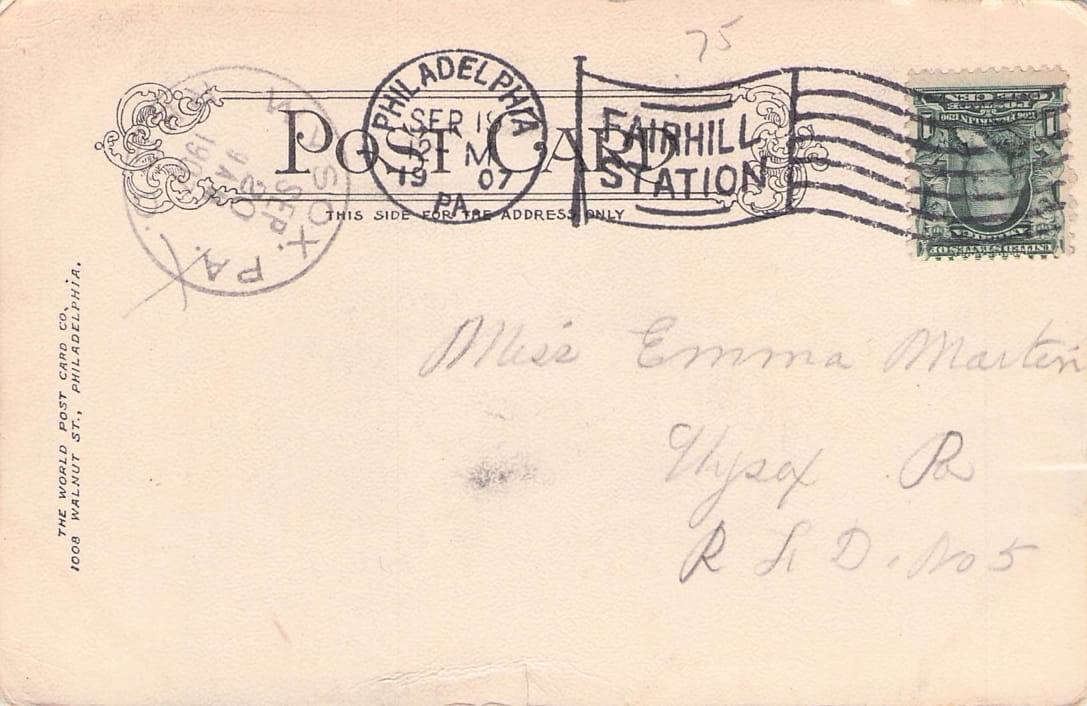 75
PHILADELPHIA, PA.
SEP 19
12- M
1907
FAIRHILL
STATION
POST CARD
THIS SIDE FOR THE ADDRESS ONLY
WYSOX
SEP.
20
9 A
190
PA.
THE WORLD POST CARD CO.,
1008 WALNUT ST., PHILADELPHIA.
Miss Emma Martin
Wysox Pa
R F D. No 5